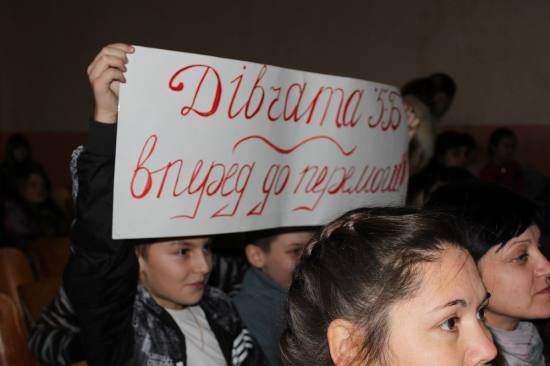 Дівчата 5Б
вперед до перемоги!